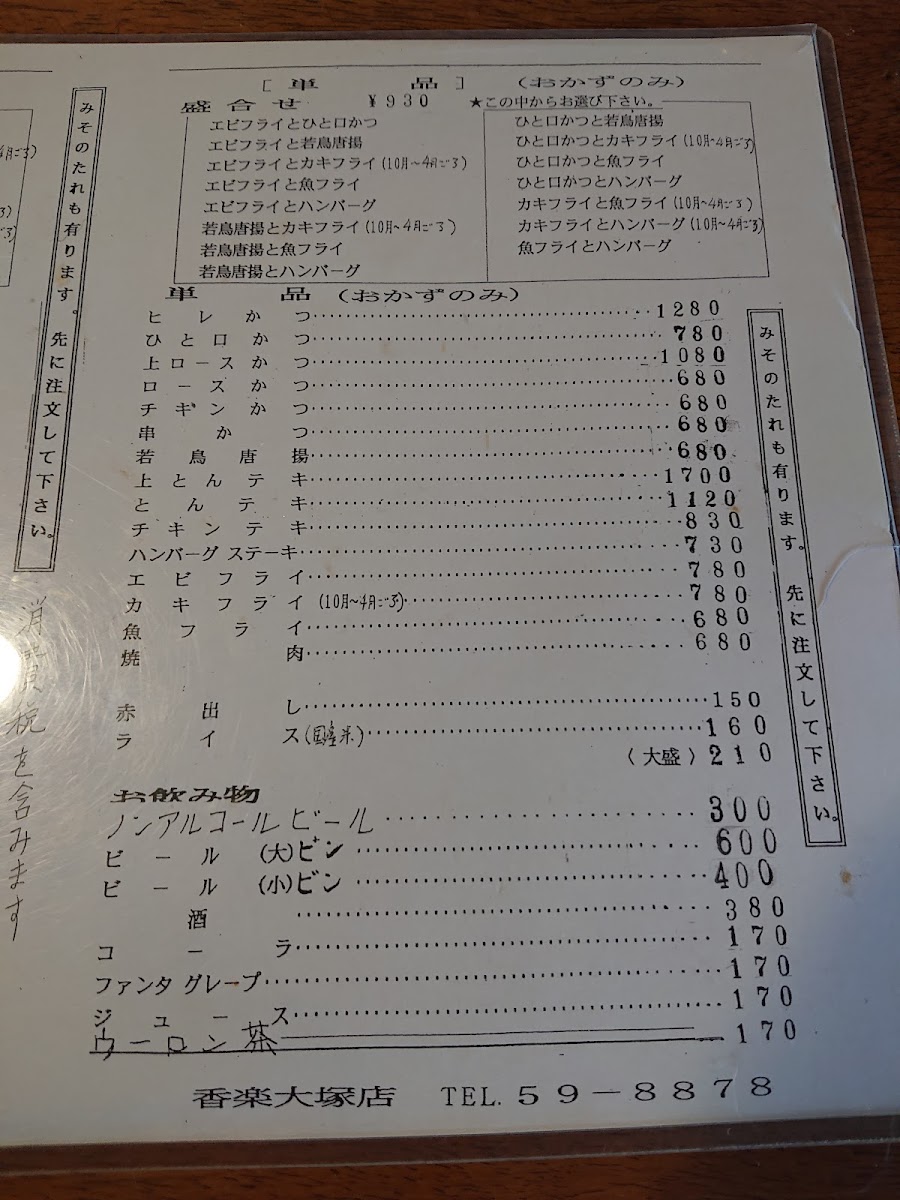 みそのたれも有ります。先に注文して下さい。
消費税を含みます
[単品] (おかずのみ)
盛合せ ¥930 ★この中からお選び下さい。
エビフライとひと口かつ
エビフライと若鳥唐揚
エビフライとカキフライ(10月〜4月ごろ)
エビフライと魚フライ
エビフライとハンバーグ
若鳥唐揚とカキフライ(10月〜4月ごろ)
若鳥唐揚と魚フライ
若鳥唐揚とハンバーグ
ひと口かつと若鳥唐揚
ひと口かつとカキフライ(10月〜4月ごろ)
ひと口かつと魚フライ
ひと口かつとハンバーグ
カキフライと魚フライ(10月〜4月ごろ)
カキフライとハンバーグ(10月〜4月ごろ)
魚フライとハンバーグ
単品 (おかずのみ)
ヒレかつ 1280
ひと口かつ 780
上ロースかつ 1080
ロースかつ 680
チキンかつ 680
串かつ 680
若鳥唐揚 680
上とんテキ 1700
とんテキ 1120
チキンテキ 830
ハンバーグステーキ 730
エビフライ 780
カキフライ(10月〜4月ごろ) 780
魚フライ 680
焼肉 680
赤出し 150
ライス(国産米) 160
(大盛) 210
みそのたれも有ります。先に注文して下さい。
お飲み物
ノンアルコールビール 300
ビール (大)ビン 600
ビール (小)ビン 400
酒 380
コーラ 170
ファンタグレープ 170
ジュース 170
ウーロン茶 170
香楽大塚店 TEL.59-8878